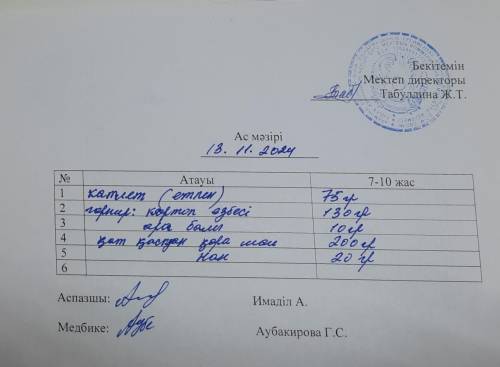 Бекітемін
Мектеп директоры
Табулдина Ж.Т.
Ас мәзірі
13.11.2024
№ Атауы 7-10 жас
1 катлет (етпен) 75гр
2 гарнир: картоп езбесі 130гр
3 ара балы 10гр
4 қант қосқан қара шай 200гр
5 нан 20гр
6
Аспазшы: Имаділ А.
Медбике: Аубакирова Г.С.